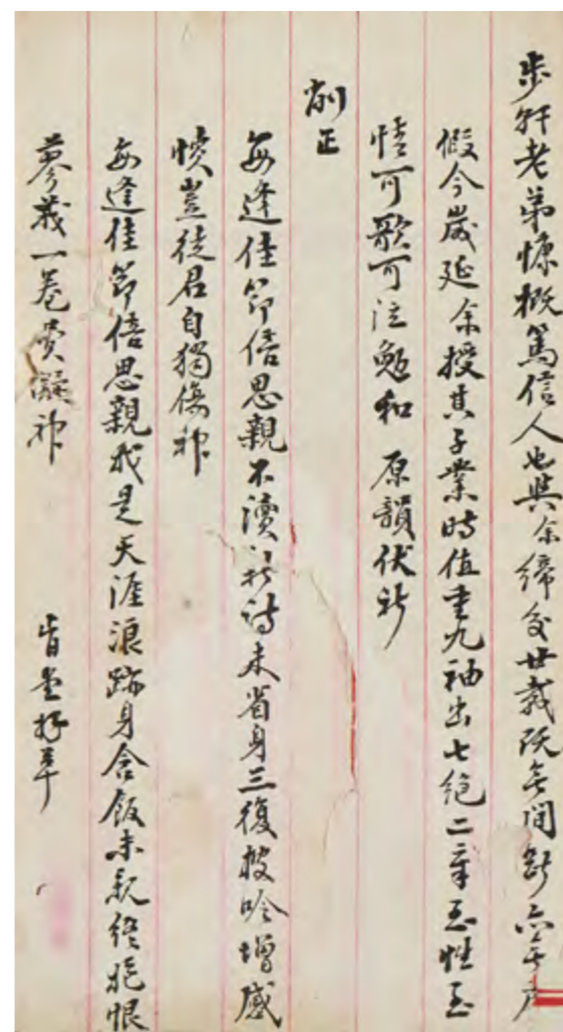 步軒老弟慷概篤信人也與余締交廿載既無間斷亦無
假今歲延余授其子業時值重九袖出七絕二章至性至
情可歌可泣勉和 原韻伏祈
削正
每逢佳節倍思親不讀新詩未省身三復披吟增感
憤豈徒君自獨傷神
每逢佳節倍思親我是天涯浪跡身含飯未親終抱恨
蓼莪一卷愴凝神
拜草